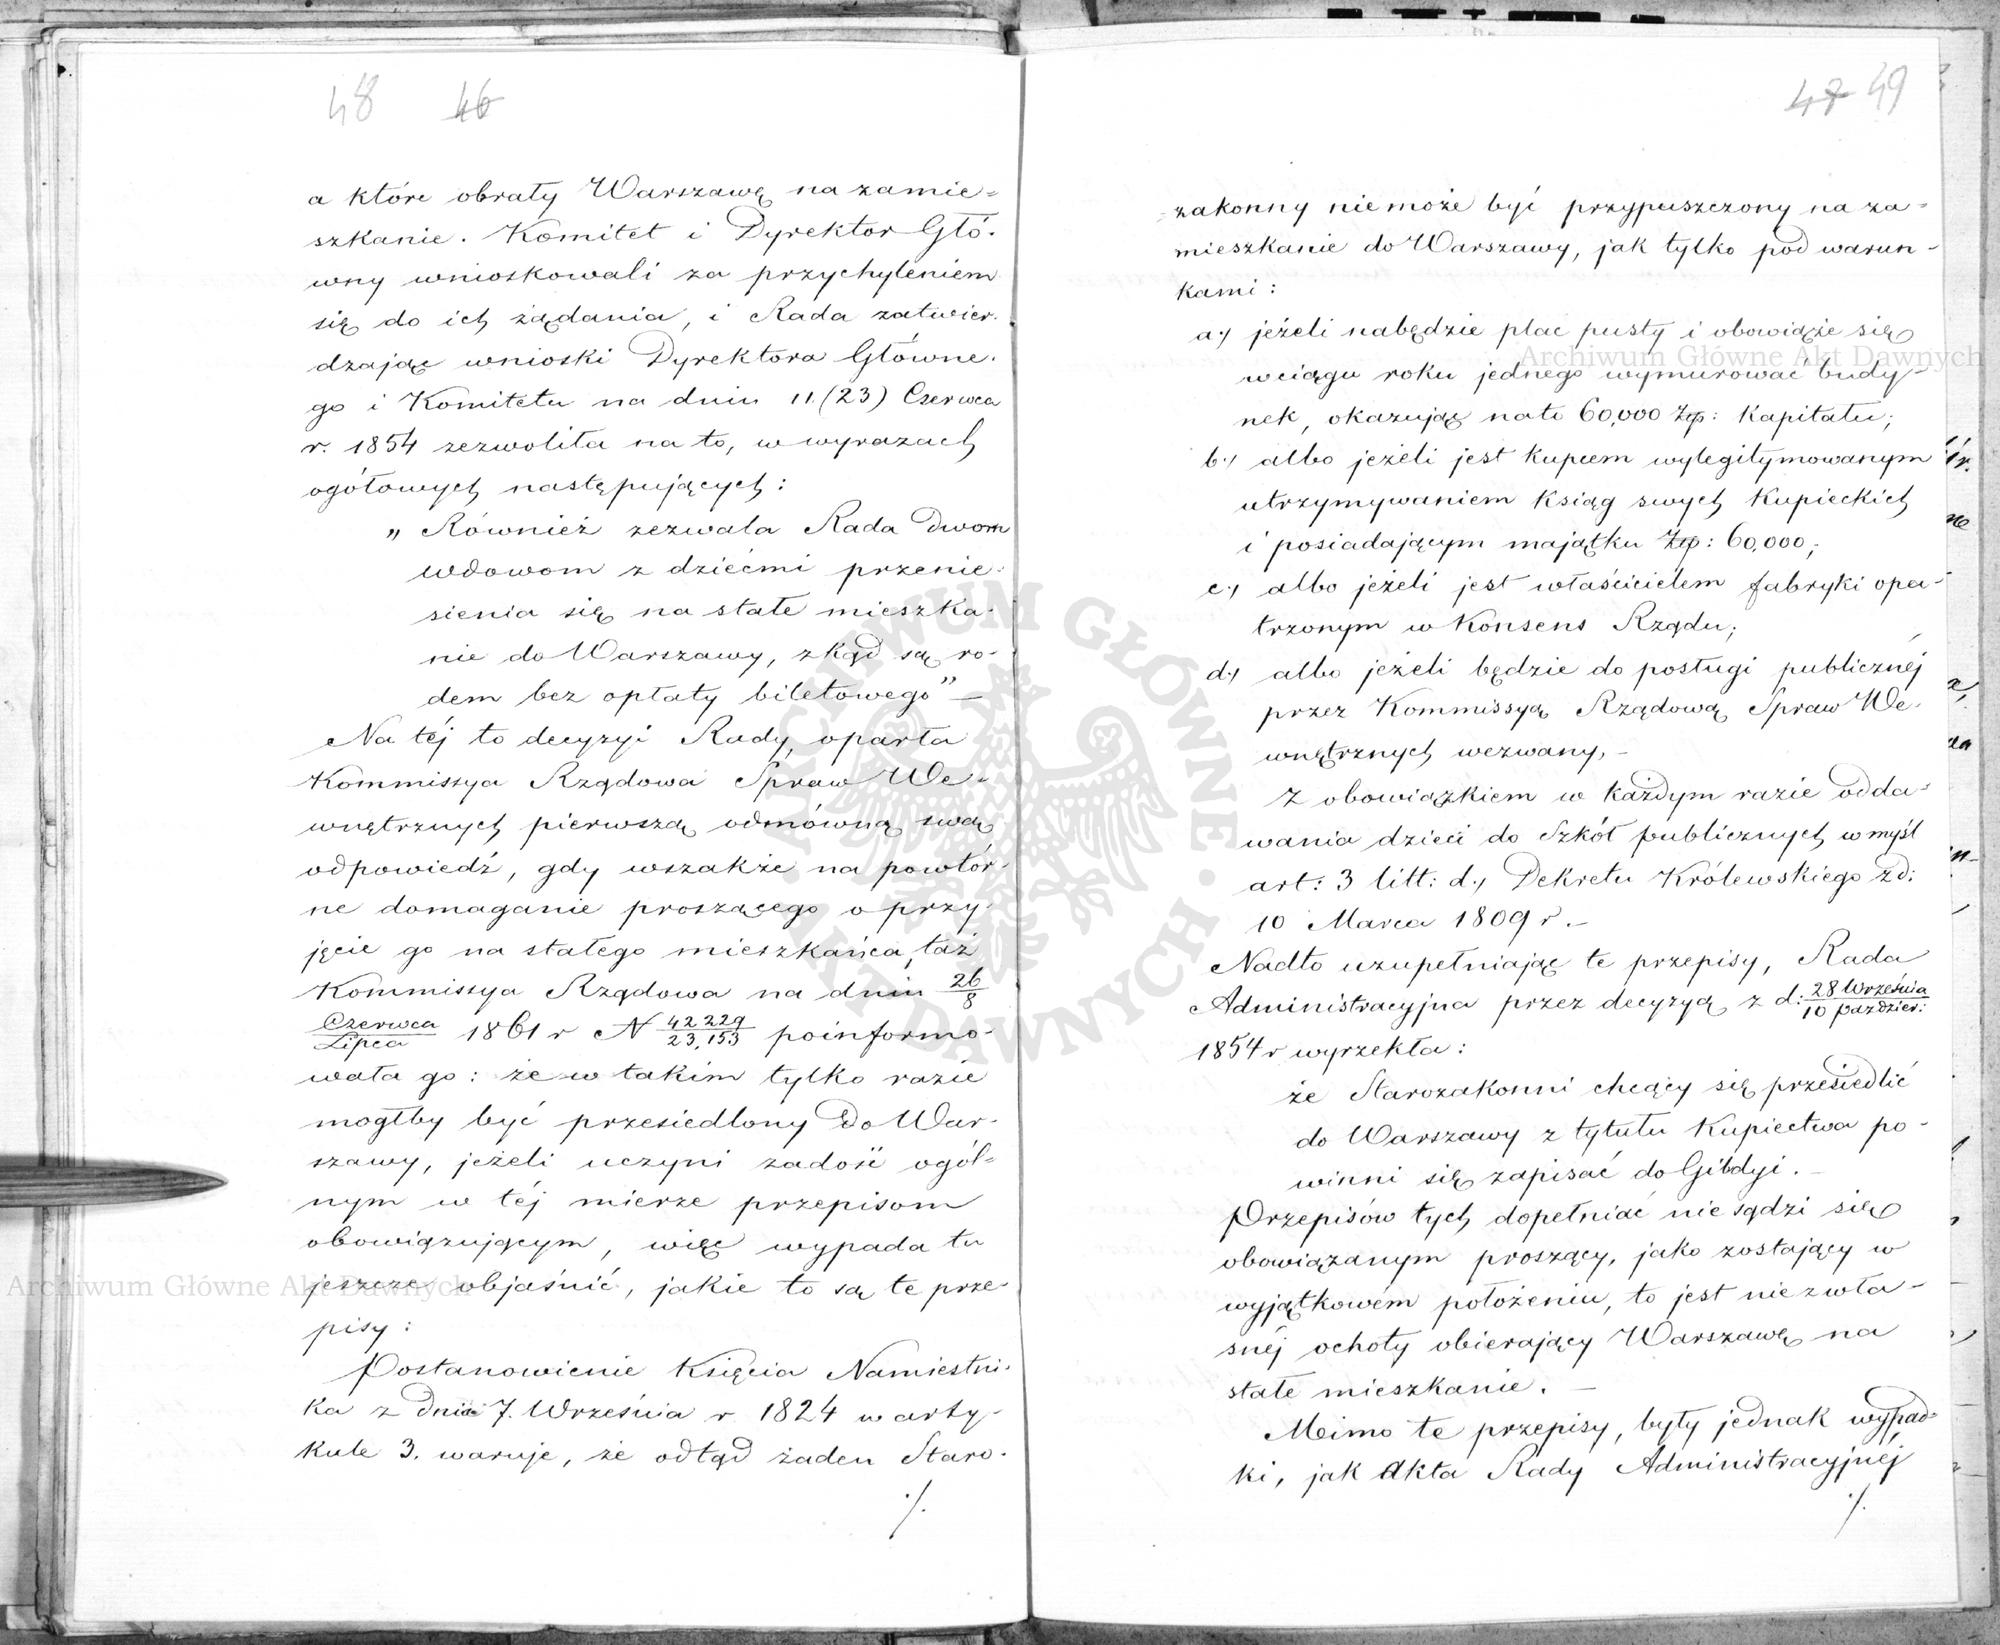 48 46
a które obrały Warszawę na zamie=
szkanie. Komitet i Dyrektor Głó.
wny wnioskowali za przychyleniem
się do ich żądania, i Rada zatwier.
dzając wnioski Dyrektora Główne.
go i Komitetu na dniu 11.(23) Czerwca
r. 1854 zezwoliła na to, w wyrazach
ogółowych następujących:
„ Również zezwala Rada dwom
wdowom z dziećmi przenie=
sienia się na stałe mieszka.
nie do Warszawy, zkąd są ro-
dem bez opłaty biletowego” —
Na téj to decyzyi Rady, oparła
Kommissya Rządowa Spraw We=
wnętrznych pierwszą odmówną swą
odpowiedź, gdy wszakże na powtór-
ne domaganie proszącego o przy-
jęcie go na stałego mieszkańca, taż
Kommissya Rządowa na dniu 26/8
Czerwca/Lipca 1861 r N 42229/23,153 poinformo-
wała go: że w takim tylko razie
mógłby być przesiedlony do War-
szawy, jeżeli uczyni zadość ogól=
nym w téj mierze przepisom
obowiązującym, więc wypada tu
jeszcze objaśnić, jakie to są te prze-
pisy:
Postanowienie Księcia Namiestni-
ka z dnia 7. Września r 1824 w arty-
kule 3. waruje, że odtąd żaden Staro.
./.
47 49
=zakonny nie może być przypuszczony na za=
mieszkanie do Warszawy, jak tylko pod warun-
kami:
a./ jeżeli nabędzie plac pusty i obowiąże się
w ciągu roku jednego wymurować budy-
nek, okazując na to 60,000 Złp: Kapitału;
b./ albo jeżeli jest kupcem wylegitymowanym
utrzymywaniem ksiąg swych Kupieckich
i posiadającym majątku Złp: 60,000;
c./ albo jeżeli jest właścicielem fabryki opa-
trzonym w Konsens Rządu;
d./ albo jeżeli będzie do posługi publicznéj
przez Kommissyą Rządową Spraw We-
wnętrznych wezwany, -
Z obowiązkiem w każdym razie odda-
wania dzieci do Szkół publicznych w myśl
art: 3 litt: d./ Dekretu Królewskiego z d:
10 Marca 1809 r. -
Nadto uzupełniając te przepisy, Rada
Administracyjna przez decyzyą z d: 28 Września/10 Paździer:
1854 r wyrzekła:
że Starozakonni chcący się przesiedlić
do Warszawy z tytułu Kupiectwa po-
winni się zapisać do Gildyi. -
Przepisów tych dopełniać nie sądzi się
obowiązanym proszący, jako zostający w
wyjątkowém położeniu, to jest nie z wła-
snéj ochoty obierający Warszawę na
stałe mieszkanie. -
Mimo te przepisy, były jednak wypad-
ki, jak Akta Rady Administracyjnéj
./.
Archiwum Główne Akt Dawnych
Archiwum Główne Akt Dawnych
ARCHIWUM GŁÓWNE AKT DAWNYCH